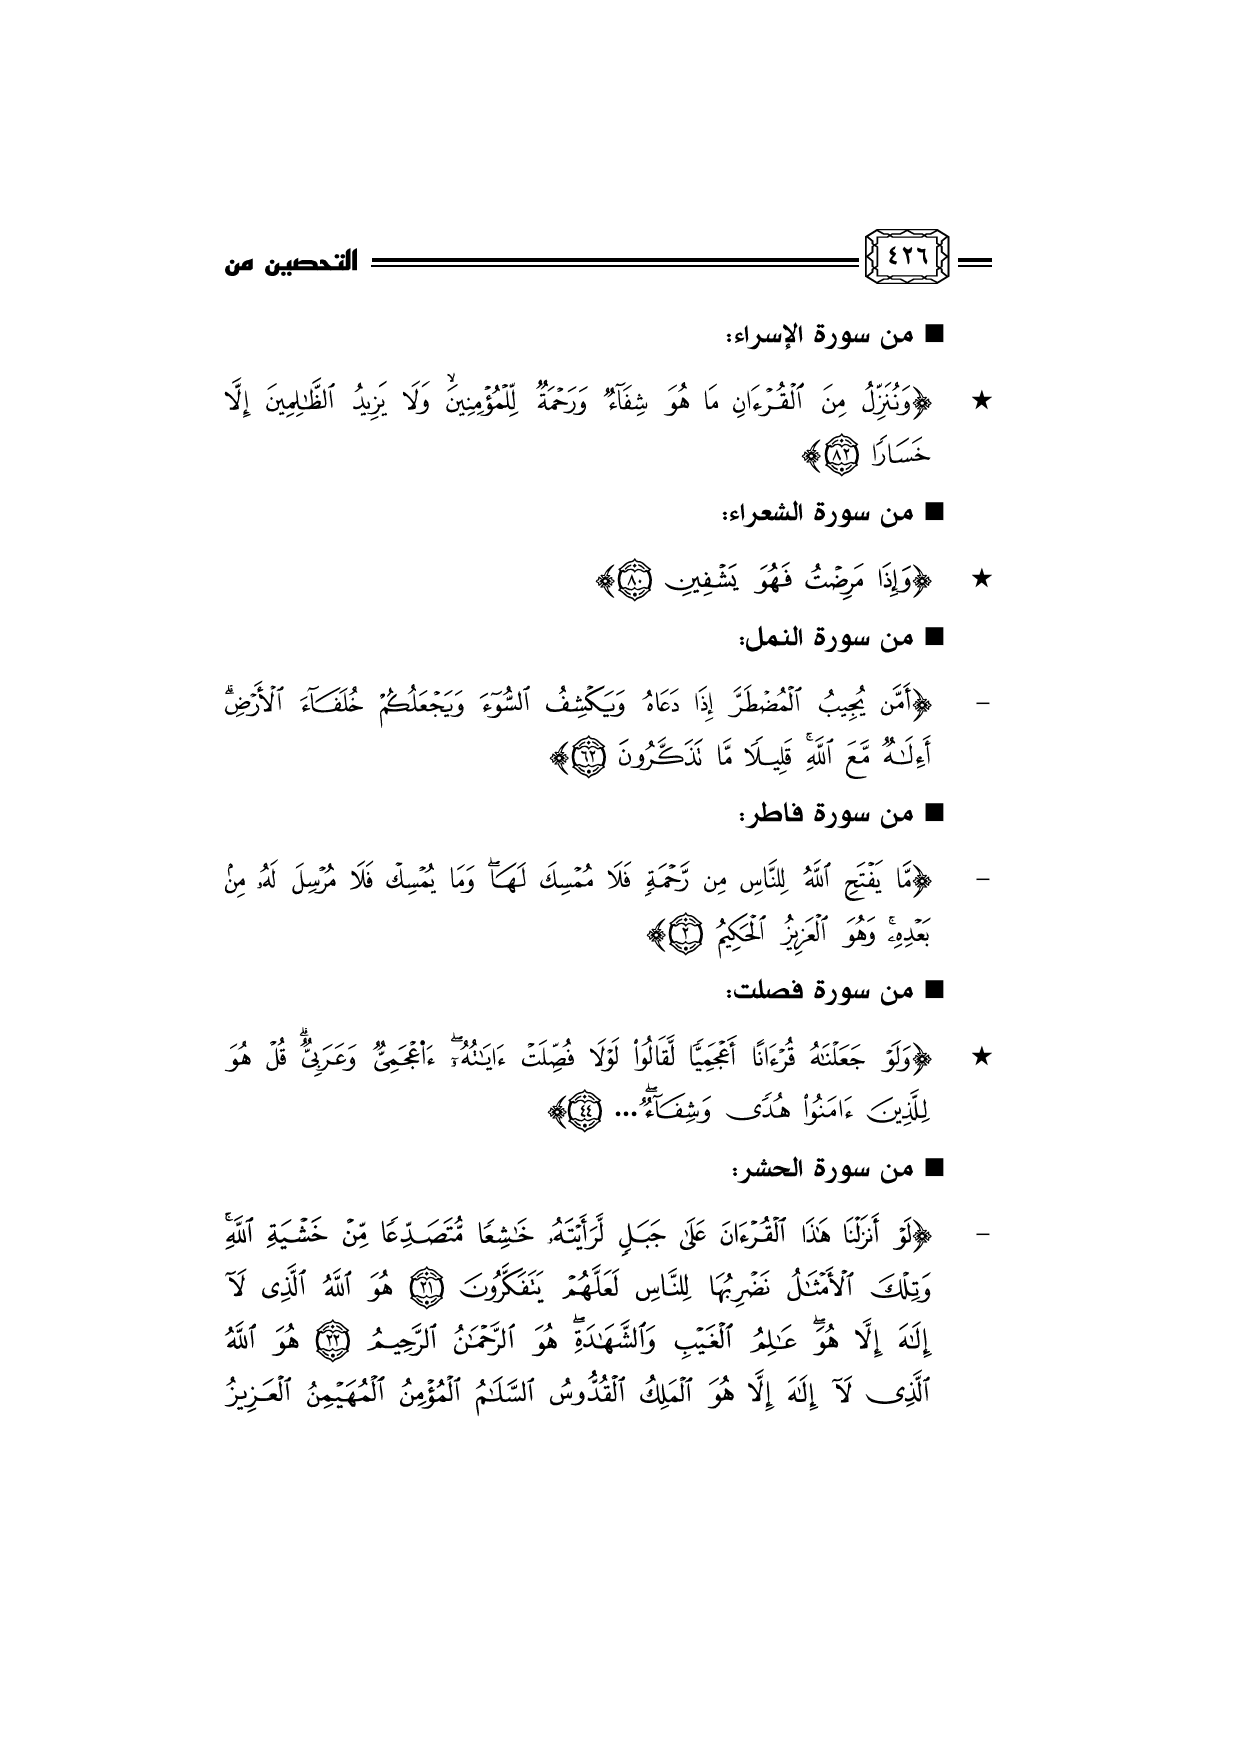 ٤٢٦ التحصين من
■ من سورة الإسراء:
★ ﴿وَنُنَزِّلُ مِنَ ٱلْقُرْءَانِ مَا هُوَ شِفَآءٌ وَرَحْمَةٌ لِّلْمُؤْمِنِينَ ۙ وَلَا يَزِيدُ ٱلظَّٰلِمِينَ إِلَّا
خَسَارًا ٨٢﴾
■ من سورة الشعراء:
★ ﴿وَإِذَا مَرِضْتُ فَهُوَ يَشْفِينِ ٨٠﴾
■ من سورة النمل:
– ﴿أَمَّن يُجِيبُ ٱلْمُضْطَرَّ إِذَا دَعَاهُ وَيَكْشِفُ ٱلسُّوٓءَ وَيَجْعَلُكُمْ خُلَفَآءَ ٱلْأَرْضِ ۗ
أَءِلَٰهٌ مَّعَ ٱللَّهِ ۚ قَلِيلًا مَّا تَذَكَّرُونَ ٦٢﴾
■ من سورة فاطر:
– ﴿مَّا يَفْتَحِ ٱللَّهُ لِلنَّاسِ مِن رَّحْمَةٍ فَلَا مُمْسِكَ لَهَا ۖ وَمَا يُمْسِكْ فَلَا مُرْسِلَ لَهُۥ مِنۢ
بَعْدِهِۦ ۚ وَهُوَ ٱلْعَزِيزُ ٱلْحَكِيمُ ٢﴾
■ من سورة فصلت:
★ ﴿وَلَوْ جَعَلْنَٰهُ قُرْءَانًا أَعْجَمِيًّا لَّقَالُوا۟ لَوْلَا فُصِّلَتْ ءَايَٰتُهُۥٓ ۖ ءَا۬عْجَمِىٌّ وَعَرَبِىٌّ ۗ قُلْ هُوَ
لِلَّذِينَ ءَامَنُوا۟ هُدًى وَشِفَآءٌ ۖ... ٤٤﴾
■ من سورة الحشر:
– ﴿لَوْ أَنزَلْنَا هَٰذَا ٱلْقُرْءَانَ عَلَىٰ جَبَلٍ لَّرَأَيْتَهُۥ خَٰشِعًا مُّتَصَدِّعًا مِّنْ خَشْيَةِ ٱللَّهِ ۚ
وَتِلْكَ ٱلْأَمْثَٰلُ نَضْرِبُهَا لِلنَّاسِ لَعَلَّهُمْ يَتَفَكَّرُونَ ٢١ هُوَ ٱللَّهُ ٱلَّذِى لَآ
إِلَٰهَ إِلَّا هُوَ ۖ عَٰلِمُ ٱلْغَيْبِ وَٱلشَّهَٰدَةِ ۖ هُوَ ٱلرَّحْمَٰنُ ٱلرَّحِيمُ ٢٢ هُوَ ٱللَّهُ
ٱلَّذِى لَآ إِلَٰهَ إِلَّا هُوَ ٱلْمَلِكُ ٱلْقُدُّوسُ ٱلسَّلَٰمُ ٱلْمُؤْمِنُ ٱلْمُهَيْمِنُ ٱلْعَزِيزُ